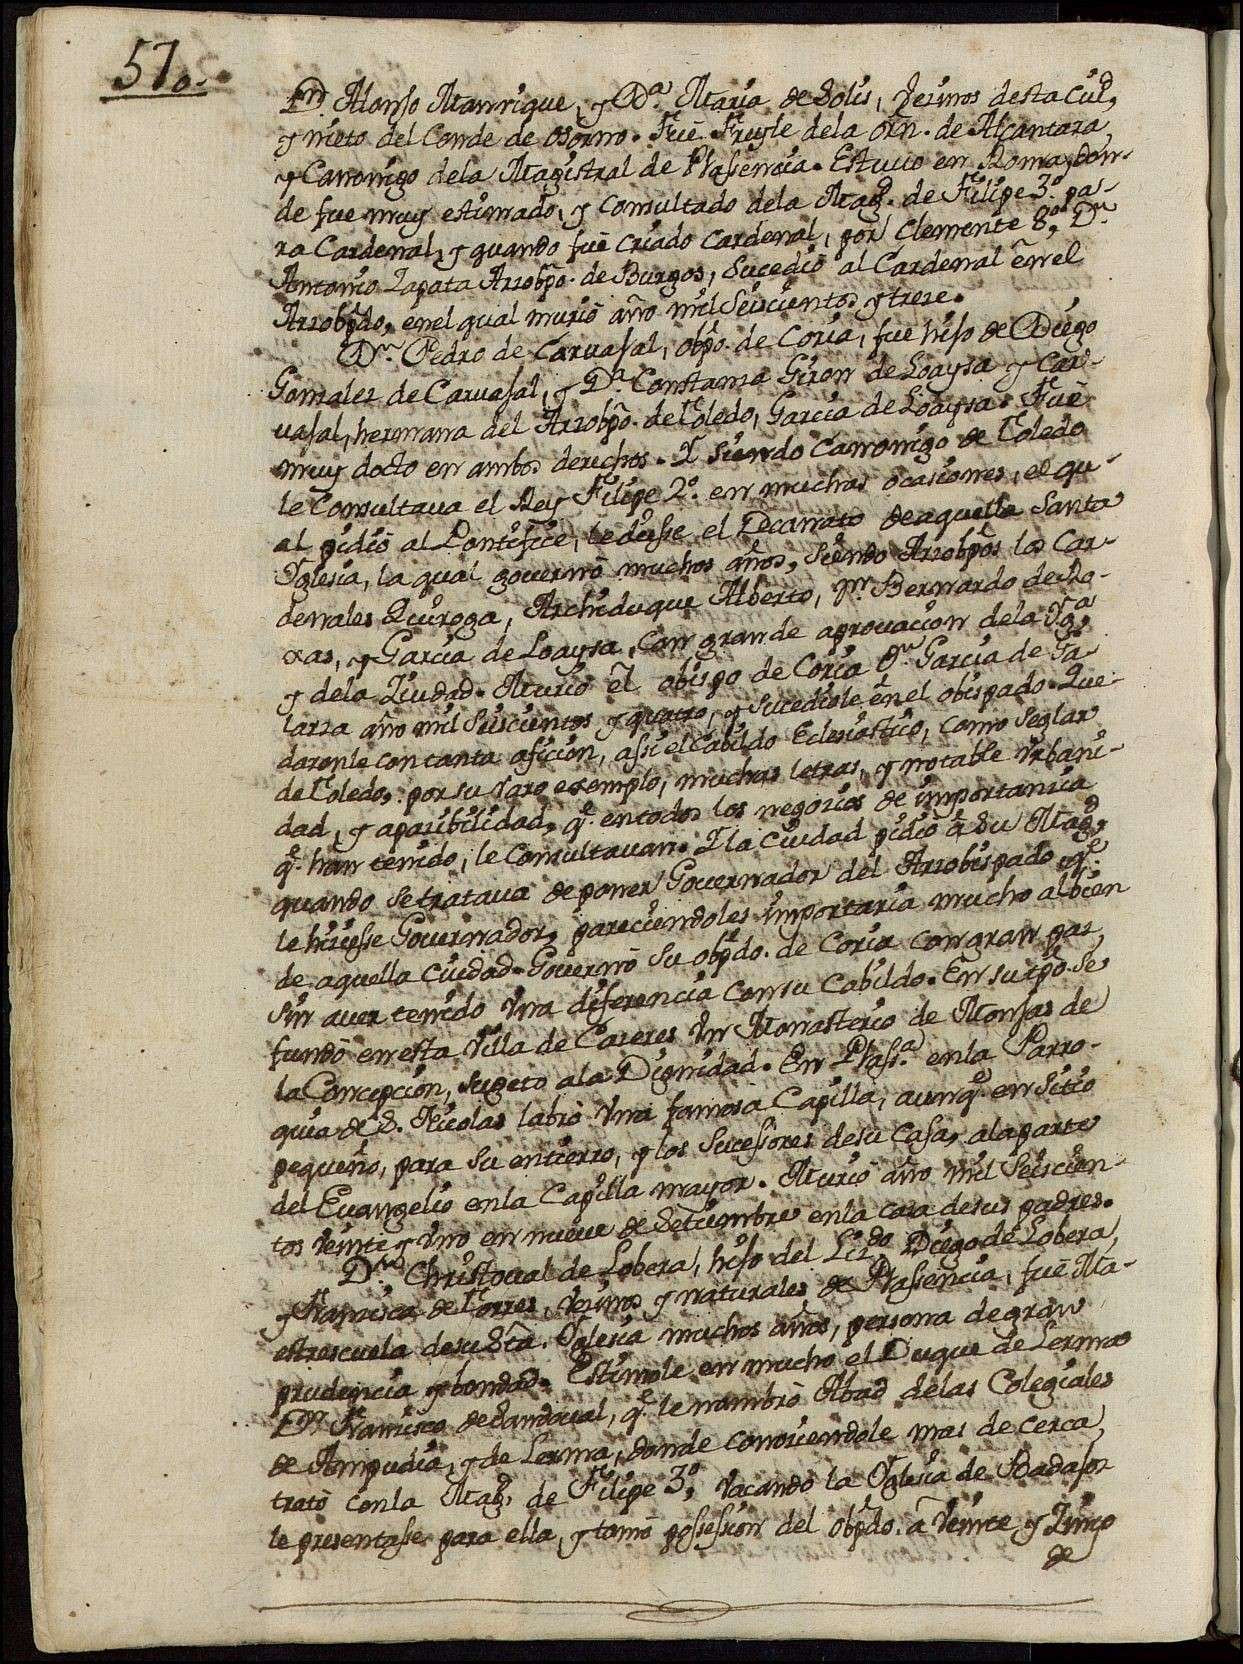 570.
Dn. Alonso Manrique, y Da. Maria de Solis, vezinos desta Ciud,
y nieto del Conde de Osorno. Fuè Freyle dela orn. de Alcantara,
y Canonigo dela Magistral de Plasencia. Estuuo en Roma, don-
de fue muy estimado, y consultado dela Magd. de Filipe 3º. pa-
ra Cardenal, y quando fuè criado Cardenal, por Clemente 8º, Dn.
Antonio Zapata Arzobpo. de Burgos, sucediò al Cardenal en el
Arzobpdo, enel qual muriò año mil seiscientos y treze.
Dn. Pedro de Carvajal, obpo. de Coria, fue hijo de Diego
Gonzalez de Carvajal, y Da. Constanza Giron de Loaysa y Car-
uajal, hermana del Arzobpo. de Toledo, Garcia de Loaysa. Fuè
muy docto en ambos derechos. Y siendo Canonigo de Toledo
le Consultaua el Rey Filipe 2º. en muchas ocasiones, el qu-
al pidiò al Pontifice, le diesse el Decanato de aquella Santa
Yglesia, la qual gouernò muchos años, siendo Arzobpos los Car-
denales Quiroga, Archiduque Alberto, Dn. Bernardo de Ro-
xas, y Garcia de Loaysa, con grande aprouacion dela Yga,
y dela Ziudad. Muriò el obispo de Coria Dn. Garcia de Ga-
larza año mil seiscientos y quatro, y sucediole en el obispado. Que-
daronle con tanta aficion, assi el Cabildo Eclesiastico, como seglar
de Toledo, por su raro exemplo, muchas letras, y notable vrbani-
dad, y aparibilidad, q. en todos los negocios de importancia
q. han tenido, le Consultauan. Y la Ciudad pidiò à su Magd,
quando se trataua de poner Gouernador del Arzobispado q.
le hiziesse Gouernador, pareciendoles importaria mucho al bien
de aquella Ciudad. Gouernò su obpdo. de Coria con gran paz,
sin auer tenido vna diferencia con su Cabildo. En su tpo. se
fundò en esta villa de Cazeres vn Monasterio de Monjas de
la Concepcion, sugeto ala Dignidad. En Plasa. en la Parro-
quia de S. Nicolas labrò vna famosa Capilla, aunq. en sitio
pequeño, para su entierro, y los sucessores de su casa, ala parte
del Euangelio en la Capilla mayor. Muriò año mil seiscien-
tos veinte y vno en nueue de Setiembre en la casa de sus padres.
Dn. Christoual de Lobera, hijo del Lizdo. Diego de Lobera,
y Francisca de Torres, vezinos y naturales de Plasencia, fuè Ma-
estrescuela de su Sta. Yglesia muchos años, persona de gran
prudencia y bondad. Estimole en mucho el Duque de Lerma
Dn. Francisco de Sandoual, q. le nombrò Abad delas Colegiales
de Ampudia, y de Lerma, donde conociendole mas de cerca,
tratò con la Magd. de Filipe 3º, vacando la Yglesia de Badajoz
le presentasse para ella, y tomò possession del obpdo. à veinte y Zinco
de